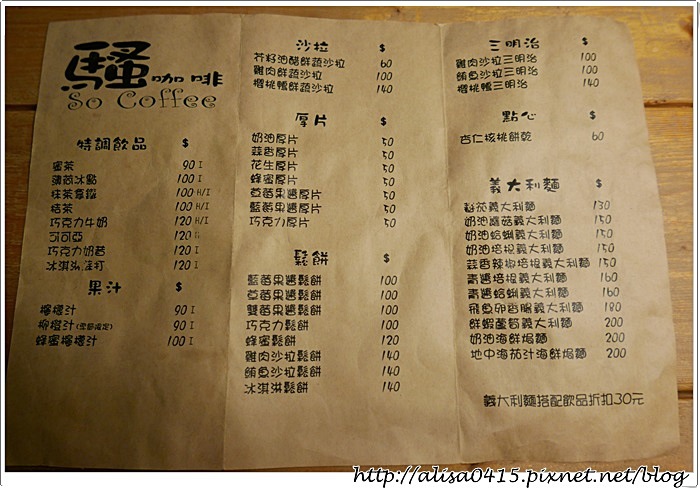 騷咖啡
So Coffee
特調飲品 $
蜜茶 90 I
薄荷冰點 100 I
抹茶拿鐵 100 H/I
桔茶 100 H/I
巧克力牛奶 120 H/I
可可亞 120 H
巧克力奶昔 120 I
冰淇淋蘇打 120 I
果汁 $
檸檬汁 90 I
柳橙汁(季節限定) 90 I
蜂蜜檸檬汁 100 I
沙拉 $
芥籽油醋鮮蔬沙拉 60
雞肉鮮蔬沙拉 100
櫻桃鴨鮮蔬沙拉 140
厚片 $
奶油厚片 50
蒜香厚片 50
花生厚片 50
蜂蜜厚片 50
草莓果醬厚片 50
藍莓果醬厚片 50
巧克力厚片 50
鬆餅 $
藍莓果醬鬆餅 100
草莓果醬鬆餅 100
雙莓果醬鬆餅 100
巧克力鬆餅 100
蜂蜜鬆餅 120
雞肉沙拉鬆餅 140
鮪魚沙拉鬆餅 140
冰淇淋鬆餅 140
三明治 $
雞肉沙拉三明治 100
鮪魚沙拉三明治 100
櫻桃鴨三明治 140
點心 $
杏仁核桃餅乾 60
義大利麵 $
秘茄義大利麵 130
奶油蘑菇義大利麵 150
奶油蛤蜊義大利麵 150
奶油培根義大利麵 150
蒜香辣椒培根義大利麵 150
青醬培根義大利麵 160
青醬蛤蜊義大利麵 160
飛魚卵香腸義大利麵 180
鮮蝦蘆筍義大利麵 200
奶油海鮮焗麵 200
地中海茄汁海鮮焗麵 200
義大利麵搭配飲品折扣30元
http://alisa0415.pixnet.net/blog